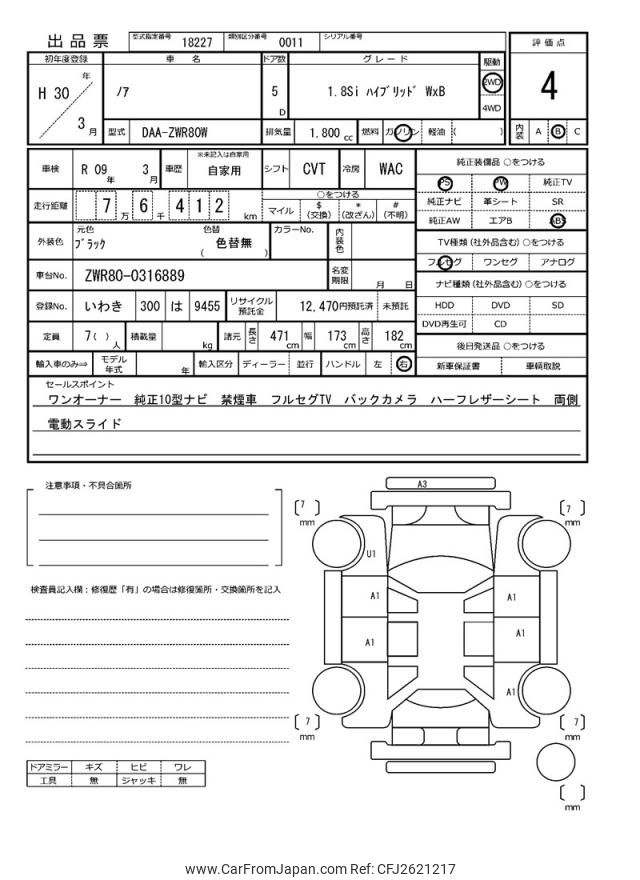 出品票 型式指定番号 18227 類別区分番号 0011 シリアル番号
評価点
4
内装 A B C
初年度登録 車名 ドア数 グレード 駆動
H 30 年 3 月
ノア
5 D
1.8Si ハイブリッド WxB
2WD
4WD
型式 DAA-ZWR80W 排気量 1,800 cc 燃料 ガソリン 軽油 ( )
車検 R 09 年 3 月 車歴 ※未記入は自家用 自家用 シフト CVT 冷房 WAC
走行距離 7 万 6 千 4 1 2 km
○をつける
マイル $(交換) *(改ざん) #(不明)
外装色 元色 ブラック 色替 ( 色替無 ) カラーNo. 内装色
車台No. ZWR80-0316889 名変期限 月 日
登録No. いわき 300 は 9455 リサイクル預託金 12,470円預託済 未預託
定員 7( ) 人 積載量 kg 諸元 長さ 471 cm 幅 173 cm 高さ 182 cm
輸入車のみ⇒ モデル年式 年 輸入区分 ディーラー 並行 ハンドル 左 右
純正装備品 ○をつける
PS PW 純正TV
純正ナビ 革シート SR
純正AW エアB ABS
TV種類(社外品含む)○をつける
フルセグ ワンセグ アナログ
ナビ種類(社外品含む)○をつける
HDD DVD SD
DVD再生可 CD
後日発送品 ○をつける
新車保証書 車輌取説
セールスポイント
ワンオーナー 純正10型ナビ 禁煙車 フルセグTV バックカメラ ハーフレザーシート 両側
電動スライド
注意事項・不具合箇所
検査員記入欄:修復歴「有」の場合は修復箇所・交換箇所を記入
ドアミラー キズ ヒビ ワレ
工具 無 ジャッキ 無
A3
[ 7 ] mm
[ 7 ] mm
U1
A1
A1
A1
A1
A1
[ 7 ] mm
[ 7 ] mm
[ ] mm
www.CarFromJapan.com Ref: CFJ2621217